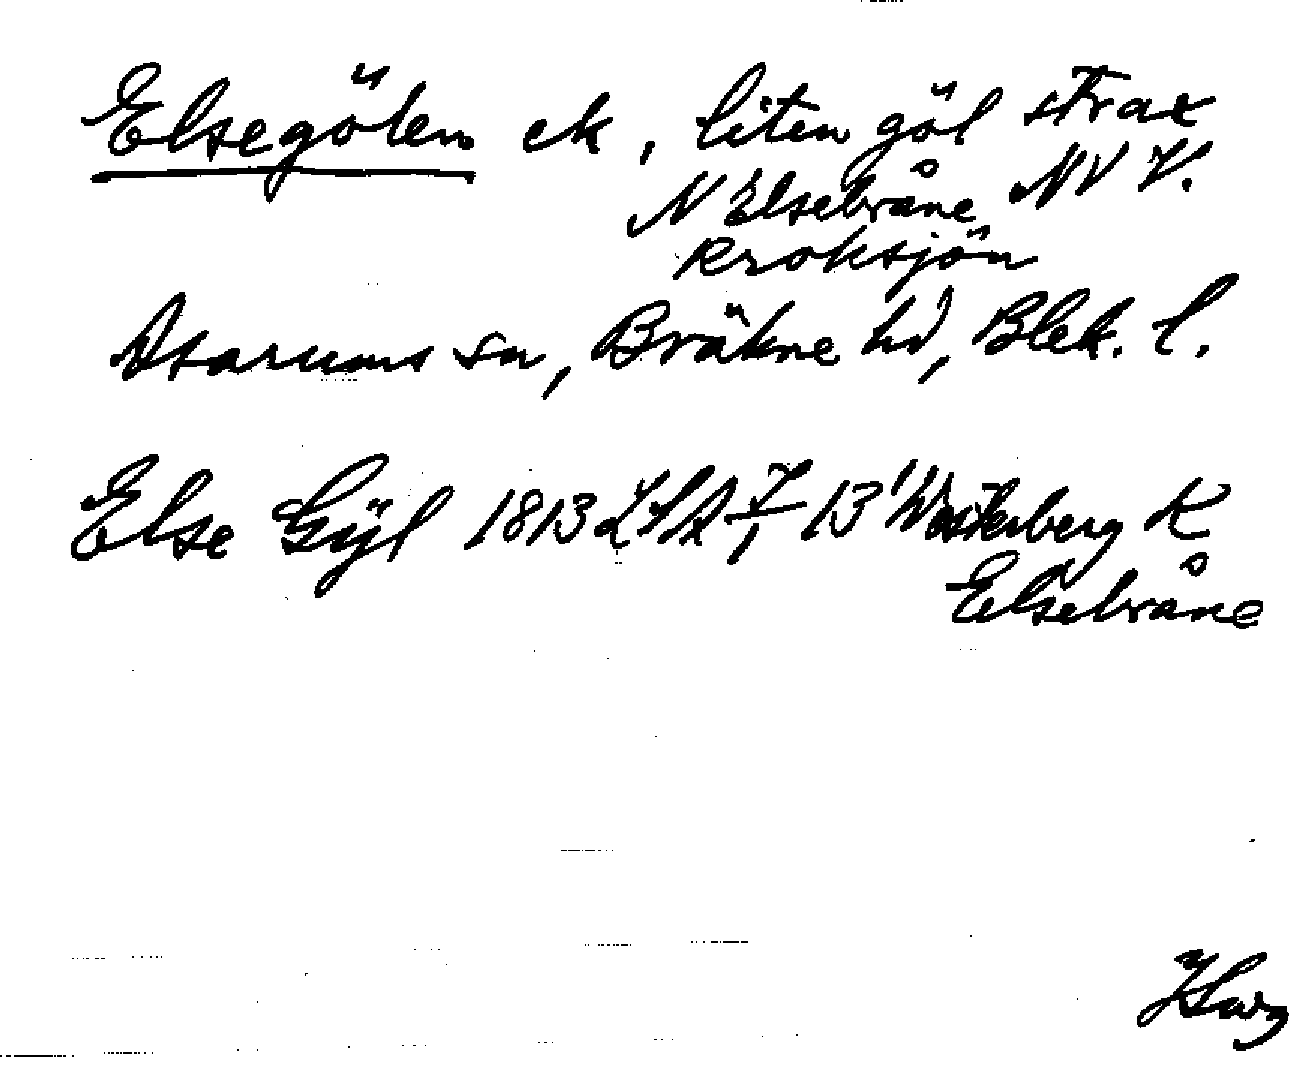 Elsegölen ek, liten göl strax
N Elsebråne NV V.
Kroksjön
Asarums sn, Bräkne hd, Blek. l.
Else Gÿl 1813 LSA F 13 Westerberg K
Elsebråne